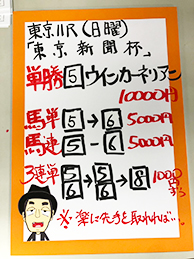 東京11R(日曜)
「東京新聞杯」
単勝 5 ウインカーネリアン
10000円
馬単 5→6 5000円
馬連 5-6 5000円
3連単 5/6→5/6→8 1000円ずつ
※楽に先手を取れれば…